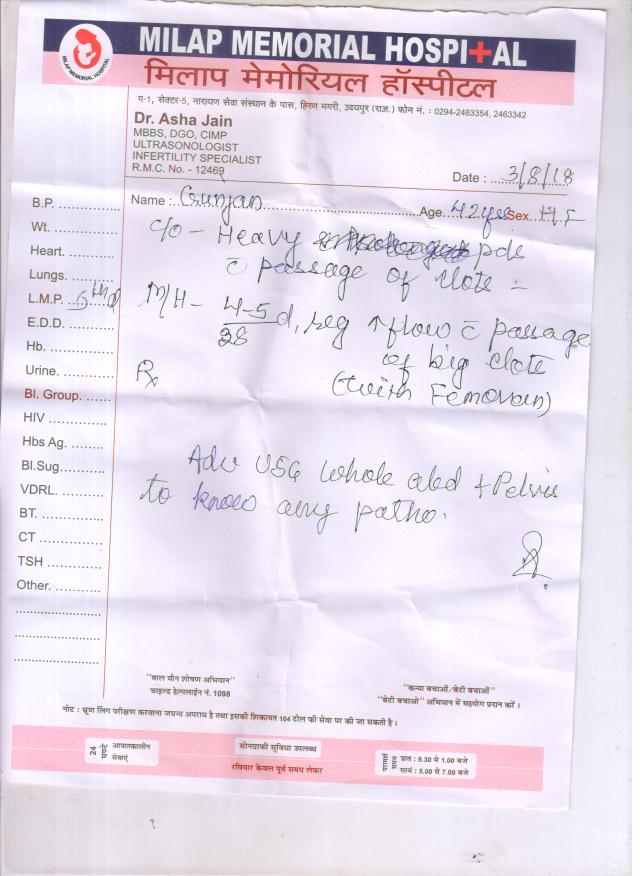 MILAP MEMORIAL HOSPITAL
मिलाप मेमोरियल हॉस्पीटल
MILAP MEMORIAL HOSPITAL
ग-1, सेक्टर-5, नारायण सेवा संस्थान के पास, हिरण मगरी, उदयपुर (राज.) फोन नं. : 0294-2463354, 2463342
Dr. Asha Jain
MBBS, DGO, CIMP
ULTRASONOLOGIST
INFERTILITY SPECIALIST
R.M.C. No. - 12469
Date : 3/8/18
Name : Gunjan Age 42 yrs Sex F
B.P.
Wt.
Heart.
Lungs.
L.M.P.
E.D.D.
Hb.
Urine.
Bl. Group.
HIV
Hbs Ag.
Bl.Sug.
VDRL.
BT.
CT
TSH
Other.
C/O - Heavy pds
c̄ passage of clots -
M/H - 4-5 d, reg ↑ flow c̄ passage
28
of big clots
(with Femovan)
Rx
Adv USG whole abd + Pelvis
to know any patho.
"बाल यौन शोषण अभियान"
चाइल्ड हेल्पलाईन नं. 1098
"कन्या बचाओं/बेटी बचाओं"
"बेटी बचाओं" अभियान में सहयोग प्रदान करें ।
नोट : भ्रूण लिंग परीक्षण करवाना जघन्य अपराध है तथा इसकी शिकायत 104 टोल फ्री सेवा पर की जा सकती है ।
24 घण्टे आपातकालीन सेवाएं
सोनोग्राफी सुविधा उपलब्ध
रविवार केवल पूर्व समय लेकर
परामर्श समय
प्रात : 9.30 से 1.00 बजे
सायं : 5.00 से 7.00 बजे